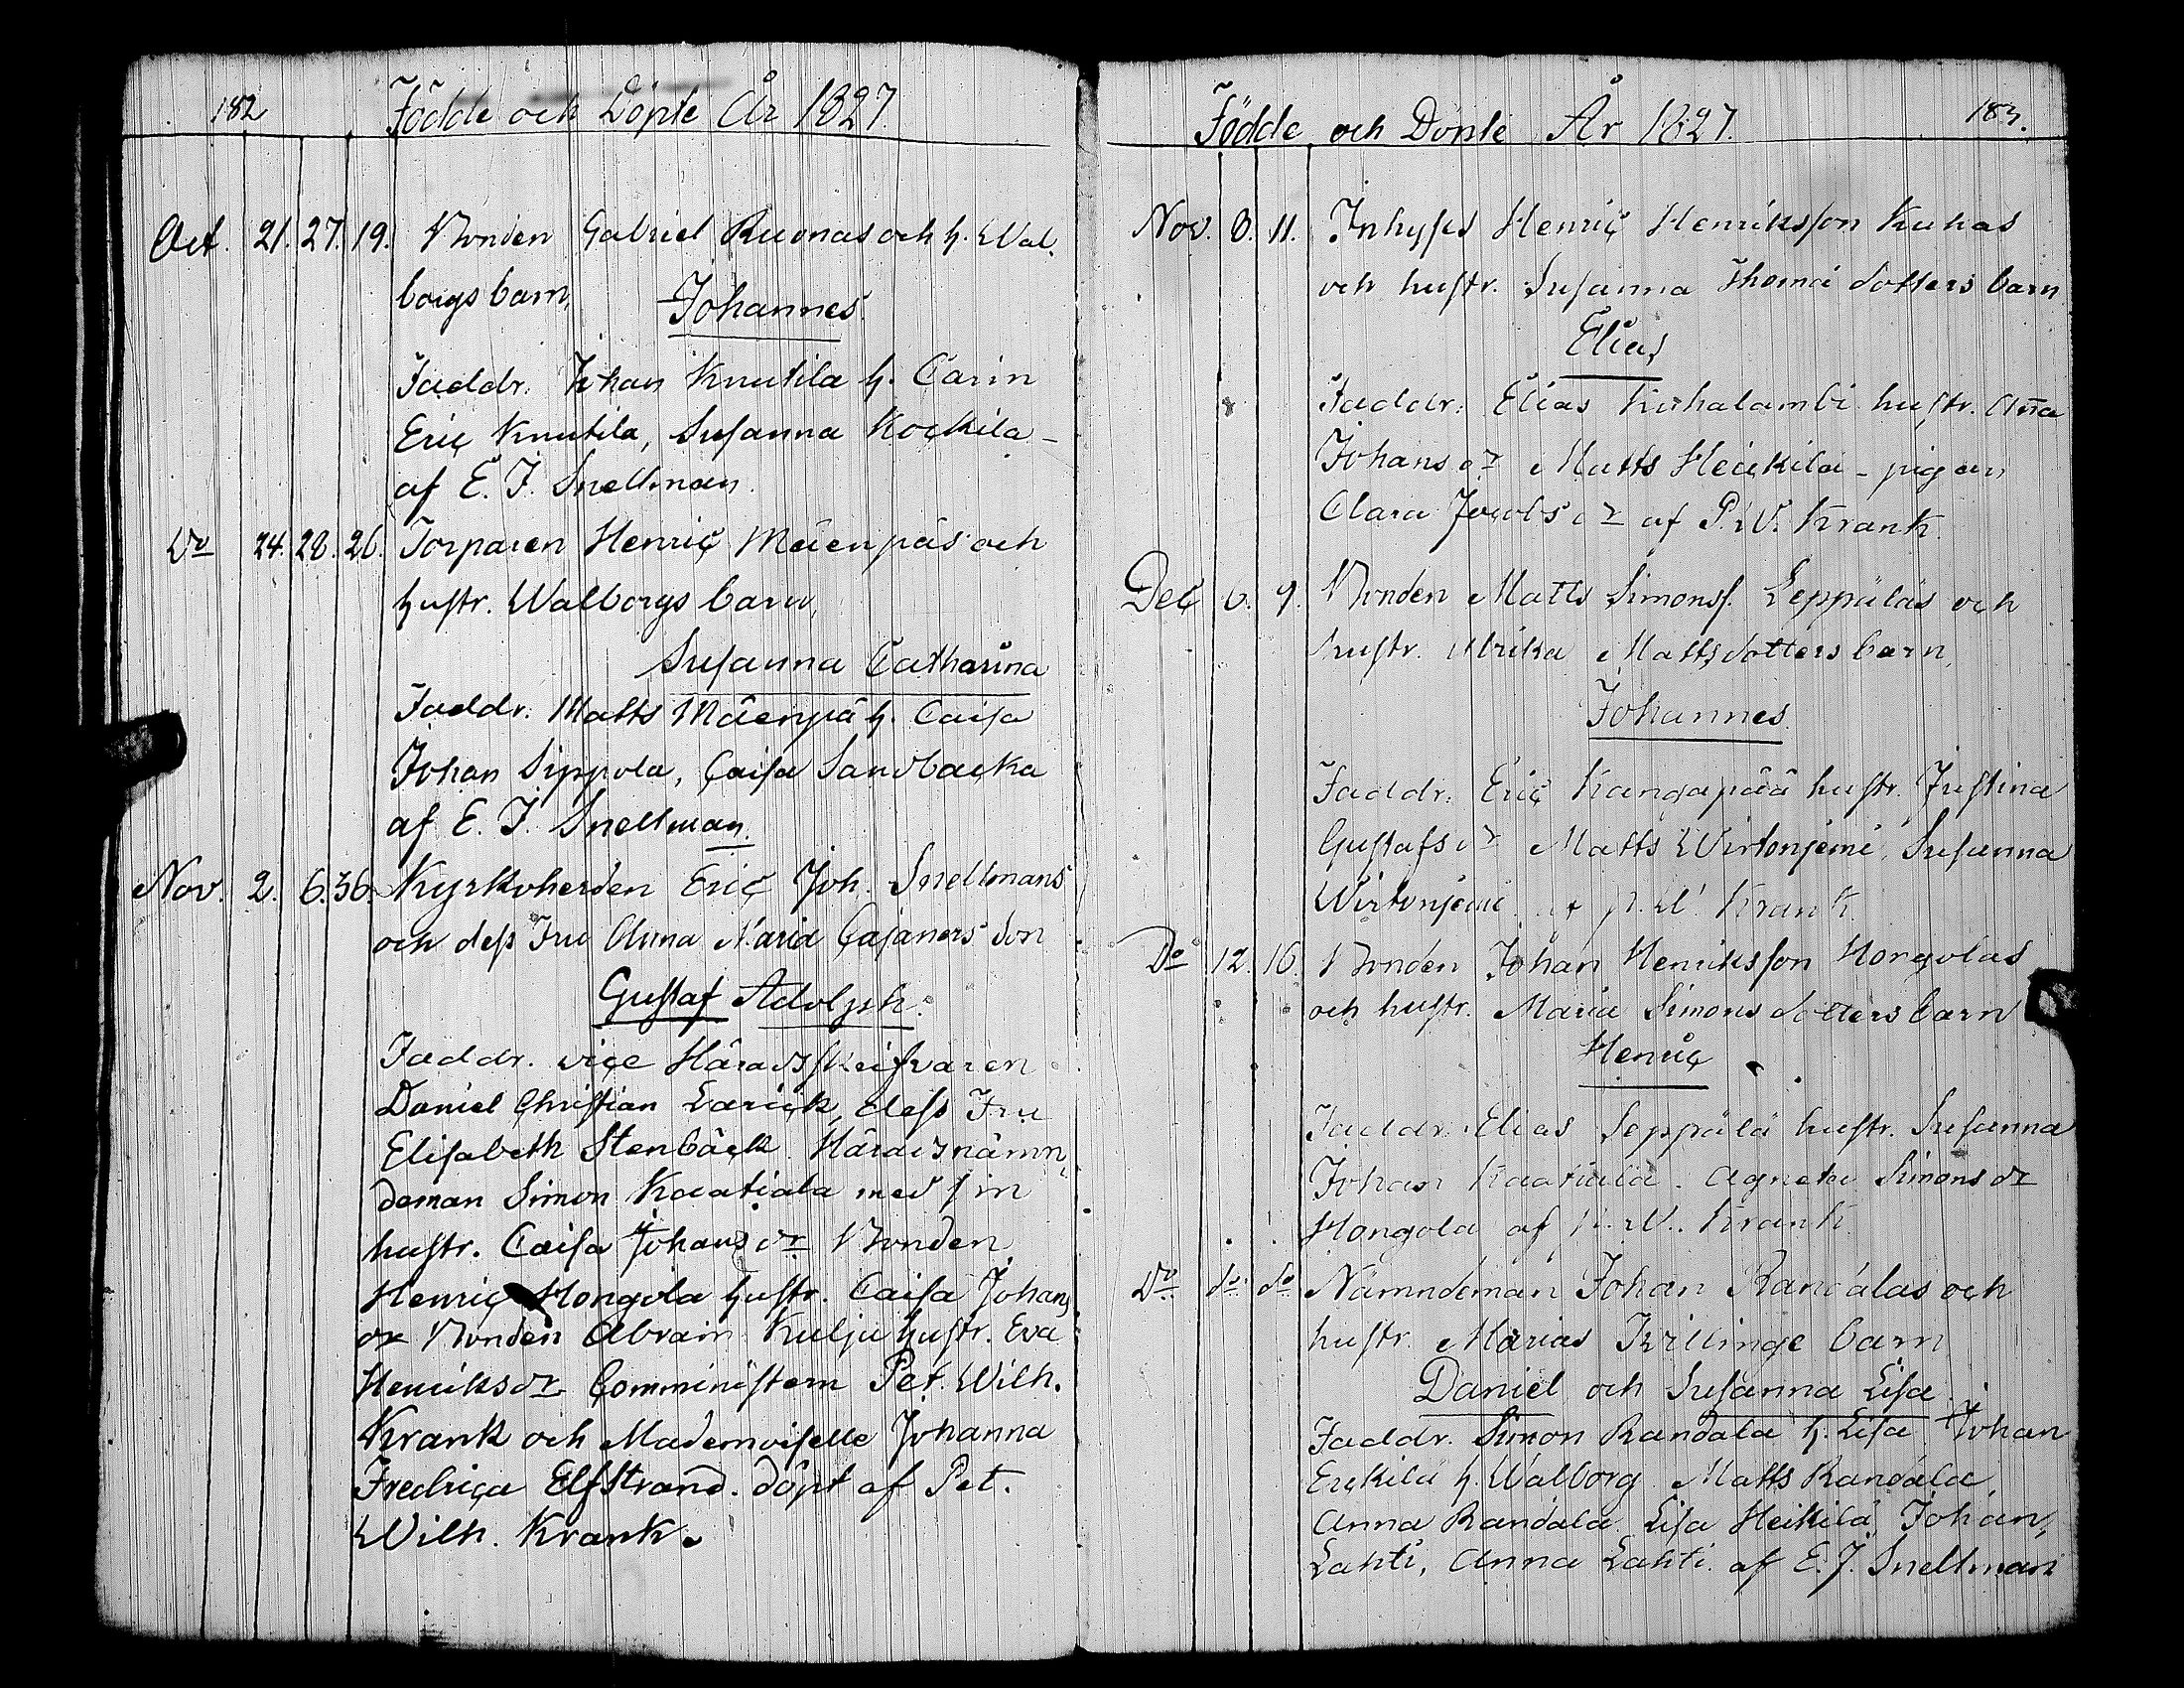 182
Födde och Döpte År 1827
Oct. 21. 27. 19. Bonden Gabriel Ruonas och h. Wal,
borgs barn,
Johannes.
Faddr. Johan Knutila h. Carin
Eric Knutila, Susanna Kockila –
af E. J. Snellman.
Do 24. 28. 26. Torparen Henric Mäenpäs och
hustr. Walborgs barn,
Susanna Catharina
Faddr. Matts Mäenpä h. Caisa
Johan Sippola, Caisa Sandbacka
af E. J. Snellman.
Nov. 2. 6. 36. Kyrkoherden Eric Joh. Snellmans
och dess Fru Anna Maria Cajaners son
Gustaf Adolph.
Faddr. vice Häradsskrifvaren
Daniel Christian Larick, dess Fru
Elisabeth Stenbäck. Häradsnämn,
deman Simon Kaatiala med sin
hustr. Caisa Johansdr Bonden
Henric Hongola hustr. Caisa Johans
dr Bonden Abram Kulju hustr. Eva
Henriksdr Comministern Pet. Wilh.
Krank och Mademoiselle Johanna
Fredrica Elfstrand. döpt af Pet.
Wilh. Krank.
183.
Födde och Döpte År 1827.
Nov. 8. 11. Inhyses Henric Henriksson Kuhas
och hustr. Susanna Thomä dotters barn
Elias
Faddr. Elias Kuhalambi hustr. Aña
Johansdr Matts Heickilä – pigan
Clara Jacobsdr af P. W. Krank.
Dec 6. 9. Bonden Matts Simonss. Leppäläs och
hustr. Ulrika Mattsdotters barn,
Johannes.
Faddr. Eric Kangapää hustr. Justina
Gustafsdr Matts Wirtonjemi, Susanna
Wirtonjemi af P. W. Krank.
Do 12. 16. Bonden Johan Henriksson Hongolas
och hustr. Maria Simonsdotters barn
Henric
Faddr. Elias Seppälä hustr. Susanna
Johan Kaatiala. Agneta Simonsdr
Hongola af P. W. Krank.
Do do do Nämndeman Johan Randalas och
hustr. Marias Tvillinge barn
Daniel och Susanna Lisa.
Faddr. Simon Randala h. Lisa, Johan
Erckilä h. Walborg Matts Randala,
Anna Randala Lisa Heikilä, Johan,
Lahti, Anna Lahti. af E. J. Snellman